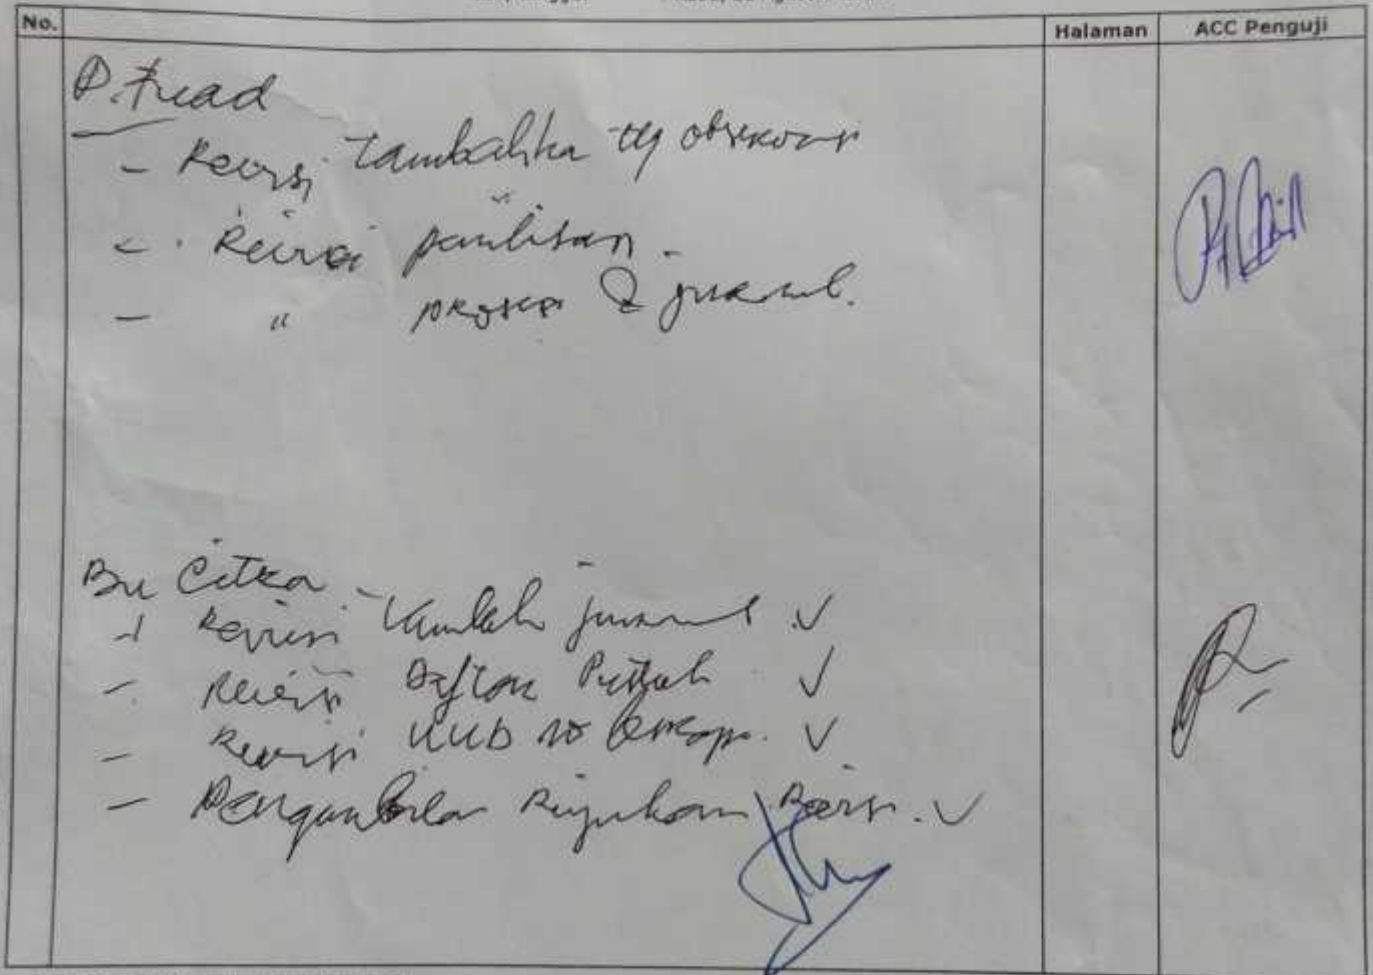 No. Halaman ACC Penguji
P. Fuad
- Revisi tambahka ttg observasi
- Revisi penulisan
- " proses & jurnal.
Bu Citra
- Revisi tambah jurnal ✓
- Revisi Daftar Pustak ✓
- Revisi UUD ✓
- Pengambilan Rujukan ✓